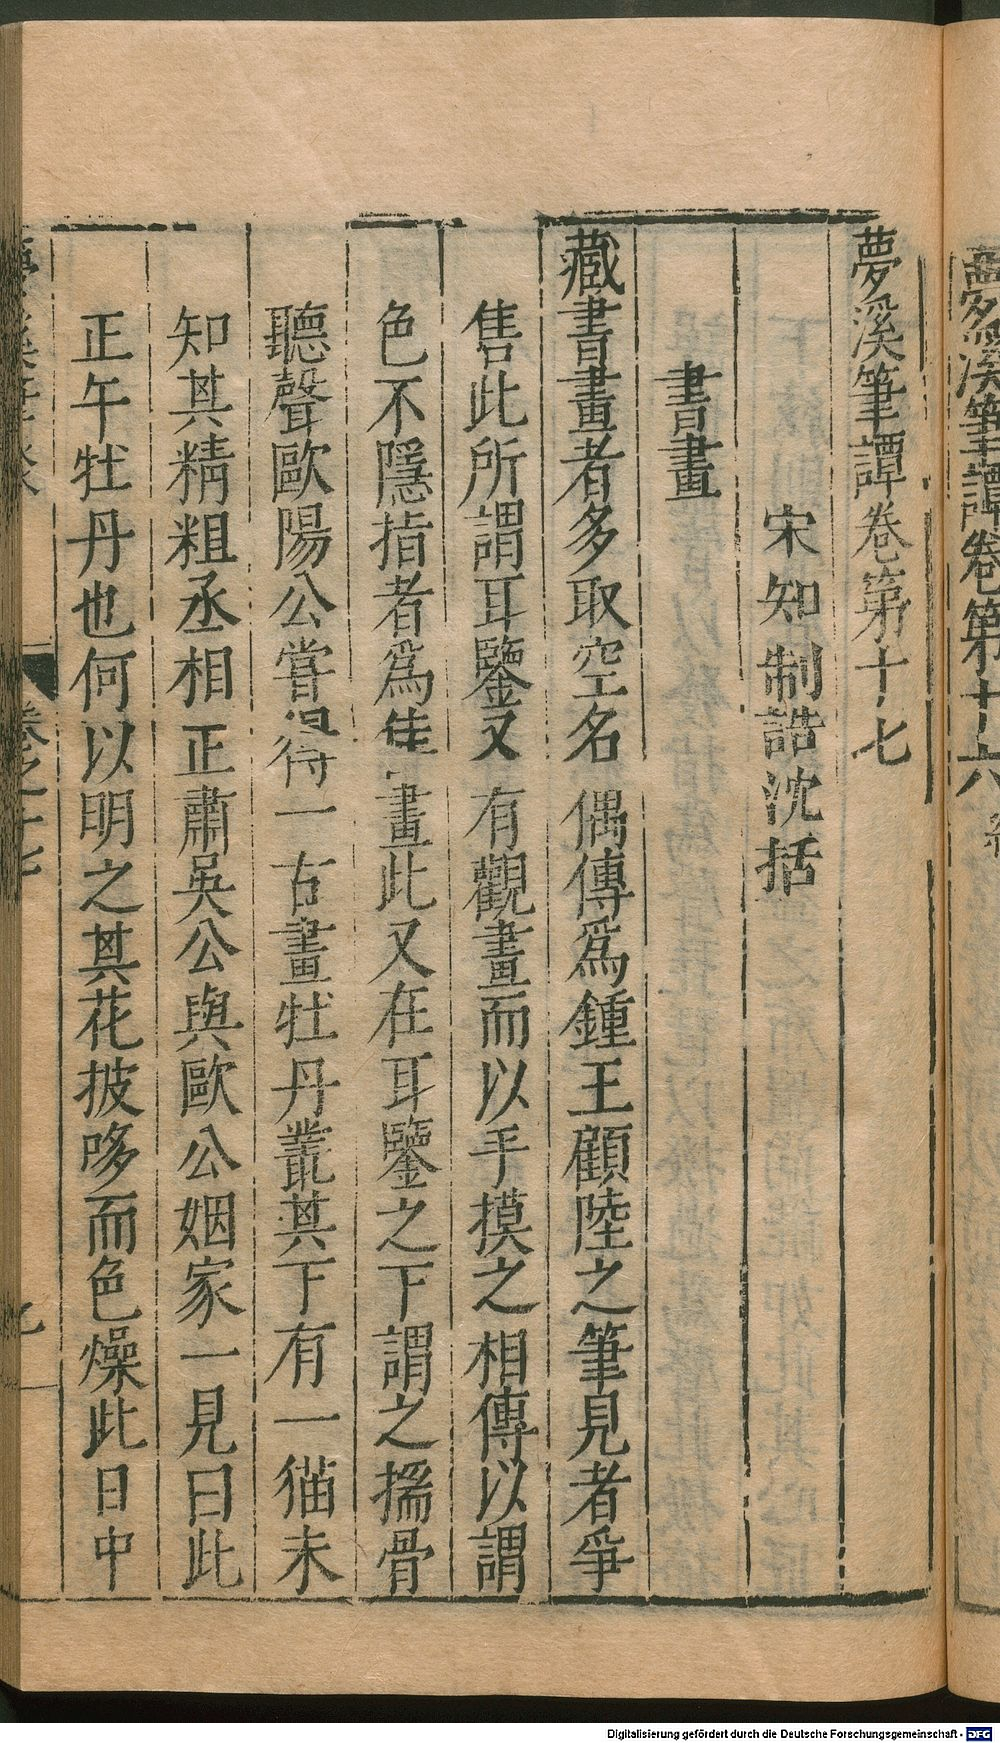 夢溪筆譚卷第十六
夢溪筆譚卷第十七
宋知制誥沈括
書畫
藏書畫者多取空名偶傳爲鍾王顧陸之筆見者爭
售此所謂耳鑒又有觀畫而以手摸之相傳以謂
色不隱指者爲佳畫此又在耳鑒之下謂之揣骨
聽聲歐陽公嘗得一古畫牡丹叢其下有一猫未
知其精粗丞相正肅吳公與歐公姻家一見曰此
正午牡丹也何以明之其花披哆而色燥此日中
卷之十七
Digitalisierung gefördert durch die Deutsche Forschungsgemeinschaft - DFG